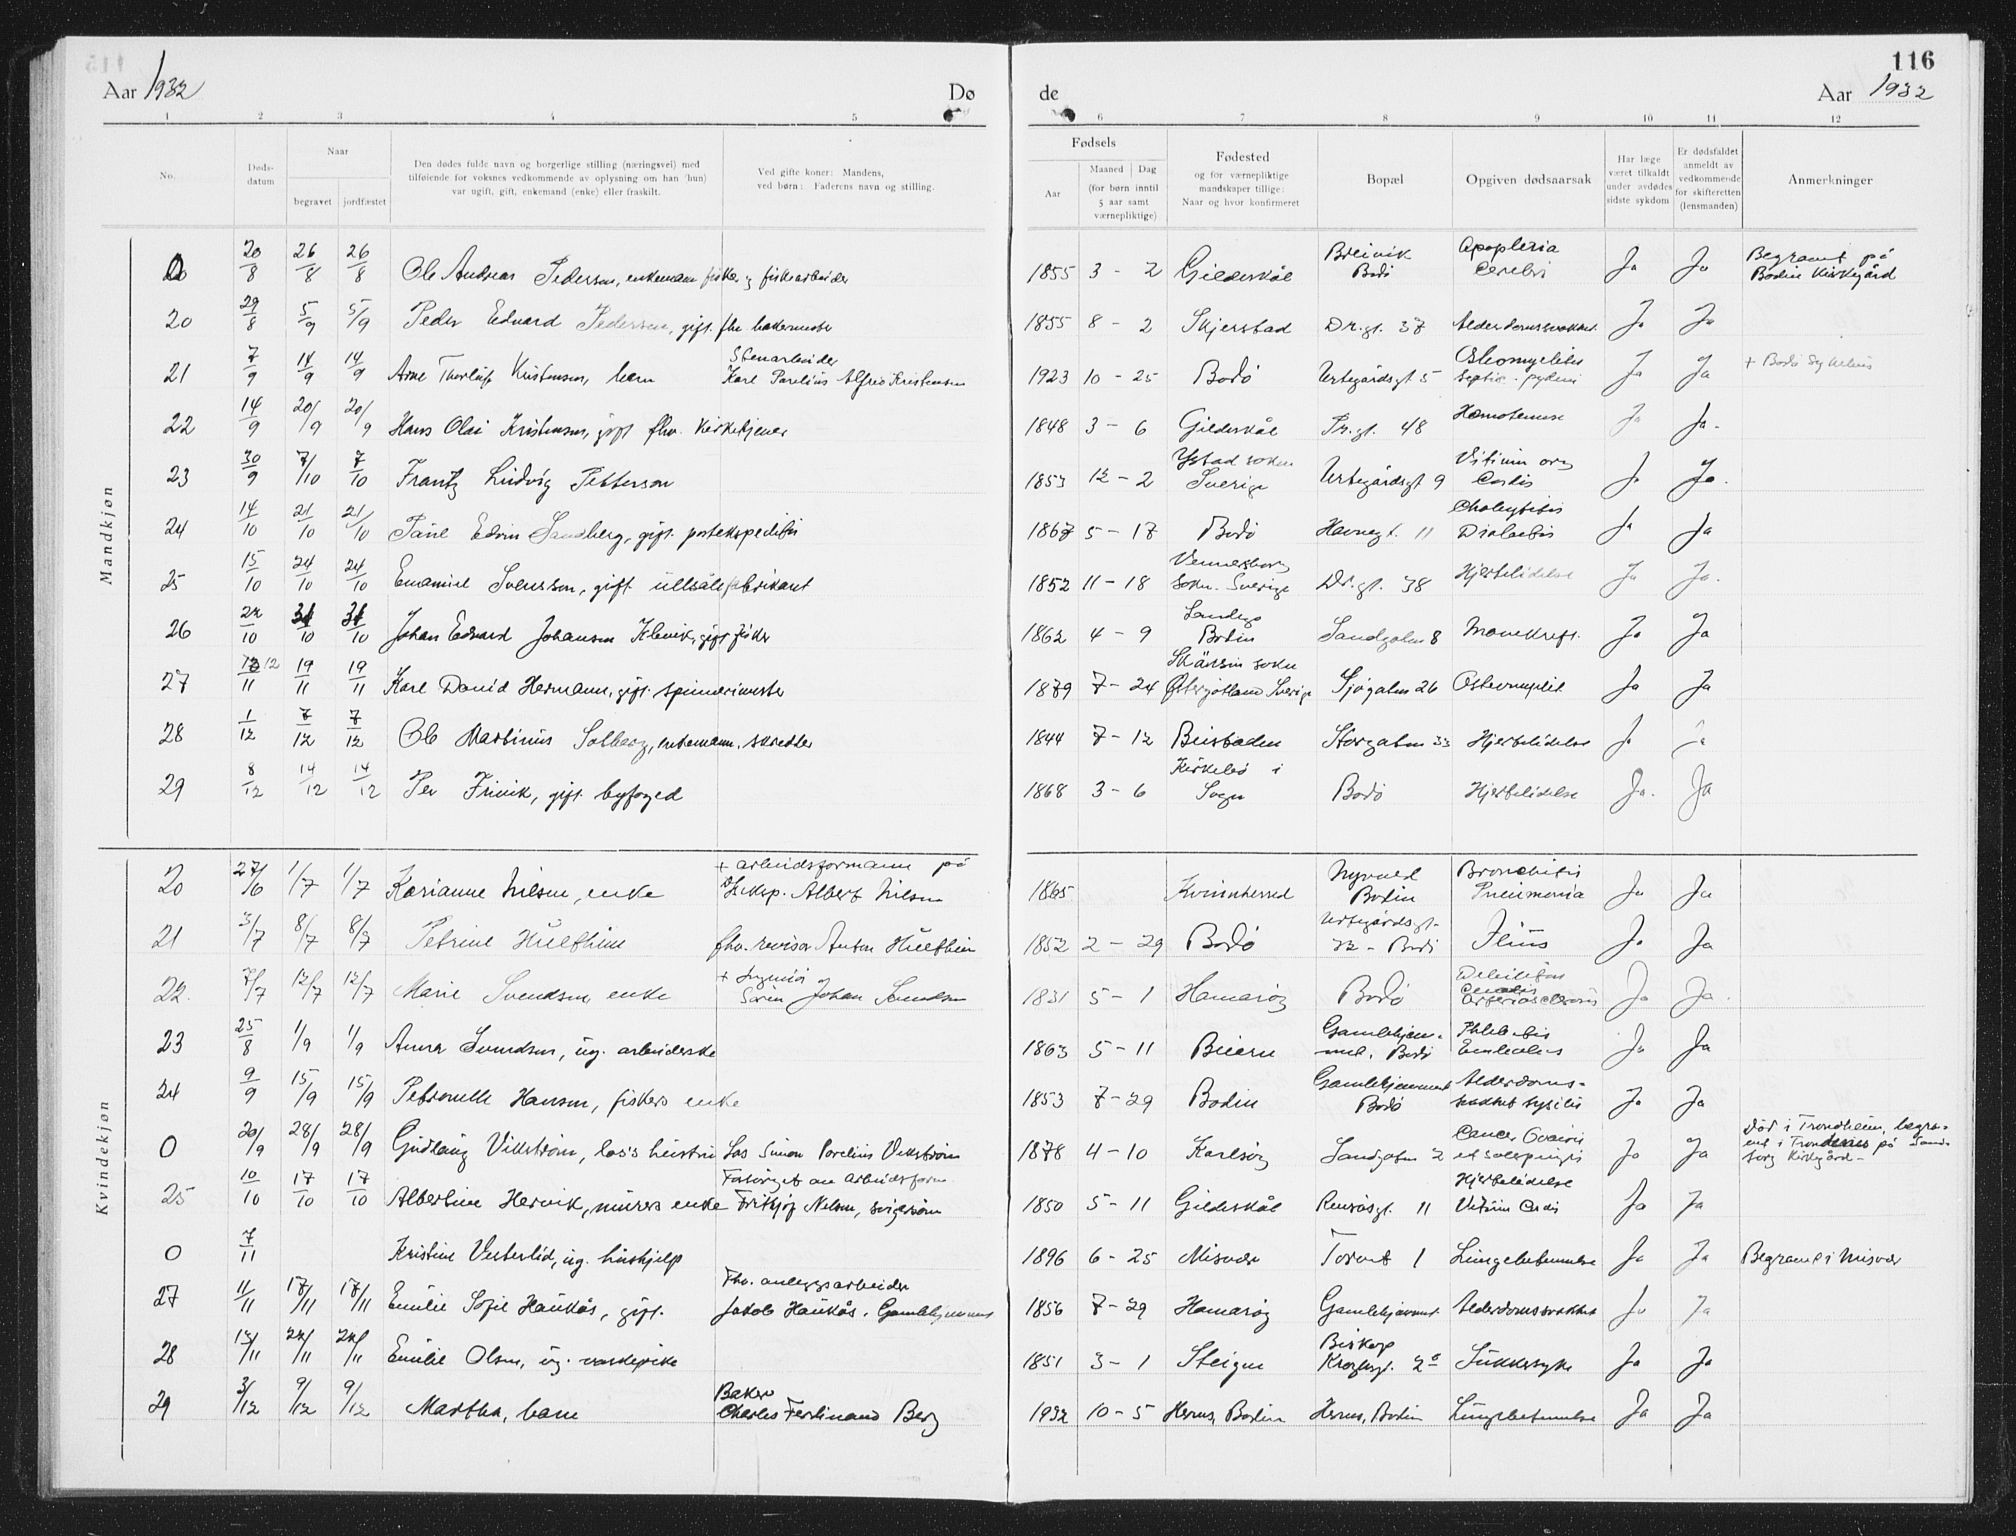 116
Aar 1932
Dø
de
Aar 1932
1 2 3 4 5 6 7 8 9 10 11 12
No.
Døds-
datum
Naar
begravet jordfæstet
Den dødes fulde navn og borgerlige stilling (næringsvei) med
tilføiende for voksnes vedkommende av oplysning om han (hun)
var ugift, gift, enkemand (enke) eller fraskilt.
Ved gifte koner: Mandens,
ved børn: Faderens navn og stilling.
Fødsels
Aar
Maaned Dag
(for børn inntil
5 aar samt
værnepliktige)
Fødested
og for værnepliktige
mandskaper tillige:
Naar og hvor konfirmeret
Bopæl
Opgiven dødsaarsak
Har læge
været tilkaldt
under avdødes
sidste sykdom
Er dødsfaldet
anmeldt av
vedkommende
for skifteretten
(lensmanden)
Anmerkninger
Mandkjøn
0 20/8 26/8 26/8 Ole Andreas Pedersen, enkemann fisker og fiskearbeider 1855 3 - 2 Gildeskål Breivik Bodö Apoplexia Cerebri Ja Ja Begravet på Bodin Kirkegård
20 29/8 5/9 5/9 Peder Edvard Pedersen, gift. fhv. bakermester 1855 8 - 2 Skjerstad Dr.gt. 37 Alderdomssvakhet Ja Ja
21 7/9 14/9 14/9 Arne Thorleif Kristensen, barn Stenarbeider Karl Parelius Alfred Kristensen 1923 10 - 25 Bodö Urtegårdsgt 5 Osteomyelitis Ja Ja + Bodö Sykehus
22 14/9 20/9 20/9 Hans Olai Kristensen, gift fhv. Kirketjener 1848 3 - 6 Gildeskål Pr.gt. 48 Ja Ja.
23 30/9 7/10 7/10 Frantz Ludvig Petterson 1853 12 - 2 Ystad soken Sverige Urtegårdsgt 9 Vitium org Cordis Ja Ja.
24 14/10 21/10 21/10 Paul Edvin Sandberg, gift. postekspeditör 1867 5 - 17 Bodö Havnegt. 11 Ja Ja
25 15/10 24/10 24/10 Emanuel Svensson, gift ullsålefabrikant 1852 11 - 18 Vennersborg Sokn. Sverige Dr.gt. 38 Hjertelidelse Ja Ja.
26 22/10 31/10 31/10 Johan Edvard Johansen Klevik, gift fisker 1862 4 - 9 Bodin Sandgaten 8 Mavekreft. Ja Ja
27 12/11 19/11 19/11 Karl David Hermann, gift. spinnerimester 1879 7 - 24 Östergötland Sverige Sjögaten 26 Ja Ja
28 1/12 7/12 7/12 Ole Martinus Solberg, enkemann. skredder 1844 7 - 12 Beitstaden Storgaten 33 Hjertelidelse Ja Ja
29 8/12 14/12 14/12 Per Frivik, gift. byfoged 1868 3 - 6 Kirkebö i Sogn Bodö Hjertelidelse Ja. Ja
Kvindekjøn
20 27/6 1/7 1/7 Karianne Nilsen, enke + arbeidsformann på D/eksp. Albert Nilsen 1865 Kvinnherred Nyvold Bodin Bronchitis Pneumonia Ja Ja
21 3/7 8/7 8/7 Petrine Hulthin fhv. revisor Anton Hulthin 1852 2 - 29 Bodö Urtegårdsgt. 22 - Bodö Ileus Ja Ja
22. 7/7 12/7 12/7 Marie Svendsen, enke Sören Johan Svendsen 1831 5 - 1 Hamaröy Bodö Arteriosclerosis Ja Ja.
23 25/8 1/9 1/9 Anna Svendsen, ug. arbeiderske 1863 5 - 11 Beiern Gamlehjem- met, Bodö Phlebitis Embolus Ja Ja
24 9/9 15/9 15/9 Petronelle Hansen, fiskers enke 1853 7 - 29 Bodin Gamlehjemmet Bodö Alderdoms- Ja Ja
0 20/9 28/9 28/9 Gudlaug Vikström, los's hustru Los Simon Parelius Vikström 1878 4 - 10 Karlsöy Sandgaten 2 Cancer Ovarii et salpingis Ja Ja Död i Trondheim, begra- vet i Trondenes på Sand- torg Kirkegård -
25 10/10 17/10 17/10 Albertine Hervik, murers enke Forsörget av arbeidsform. Fritjof Nilsen, svigersön 1850 5 - 11 Gildeskål Rensåsgt. 11 Hjertelidelse Vitium Cordis Ja Ja
0 7/11 Kristine Vesterlid, ug. hushjelp 1896 6 - 25 Misvær Torvet 1 Lungebetennelse Ja Ja Begravet i Misvær
27 11/11 17/11 17/11 Emilie Sofie Haukås, gift. Fhv. anleggsarbeider Jakob Haukås, Gamlehjemmet 1856 7 - 29 Hamaröy Gamlehjemmet Alderdomssvakhet Ja Ja
28 12/11 22/11 22/11 Emilie Olsen, ug. vaskepike 1851 3 - 1 Steigen Biskop Kroghsgt. 2 Sukkersyke Ja Ja
29 3/12 9/12 9/12 Martha, barn Baker Charles Ferdinand Berg 1932 10 - 5 Hernes, Bodin Hernes, Bodin Lungebetennelse Ja Ja